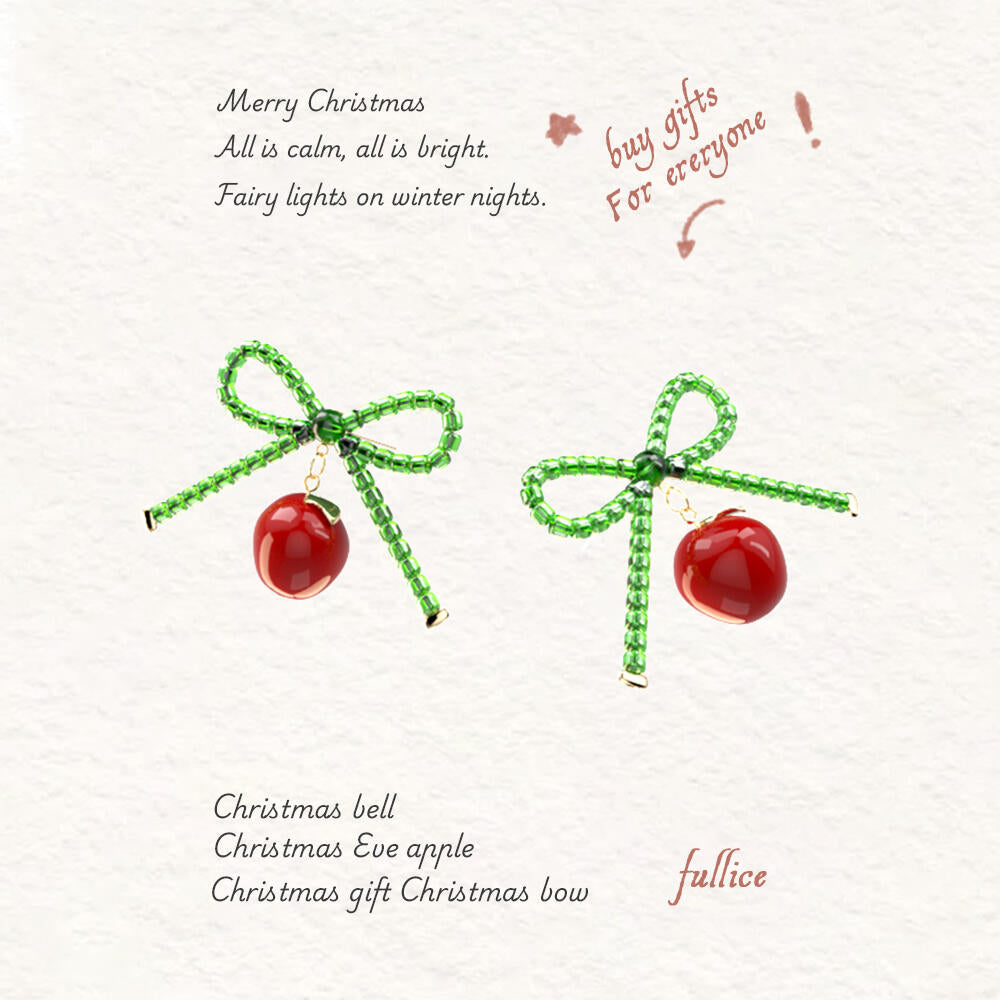 Merry Christmas
All is calm, all is bright.
Fairy lights on winter nights.
buy gifts
For ereryone
!
Christmas bell
Christmas Eve apple
Christmas gift Christmas bow
fullice